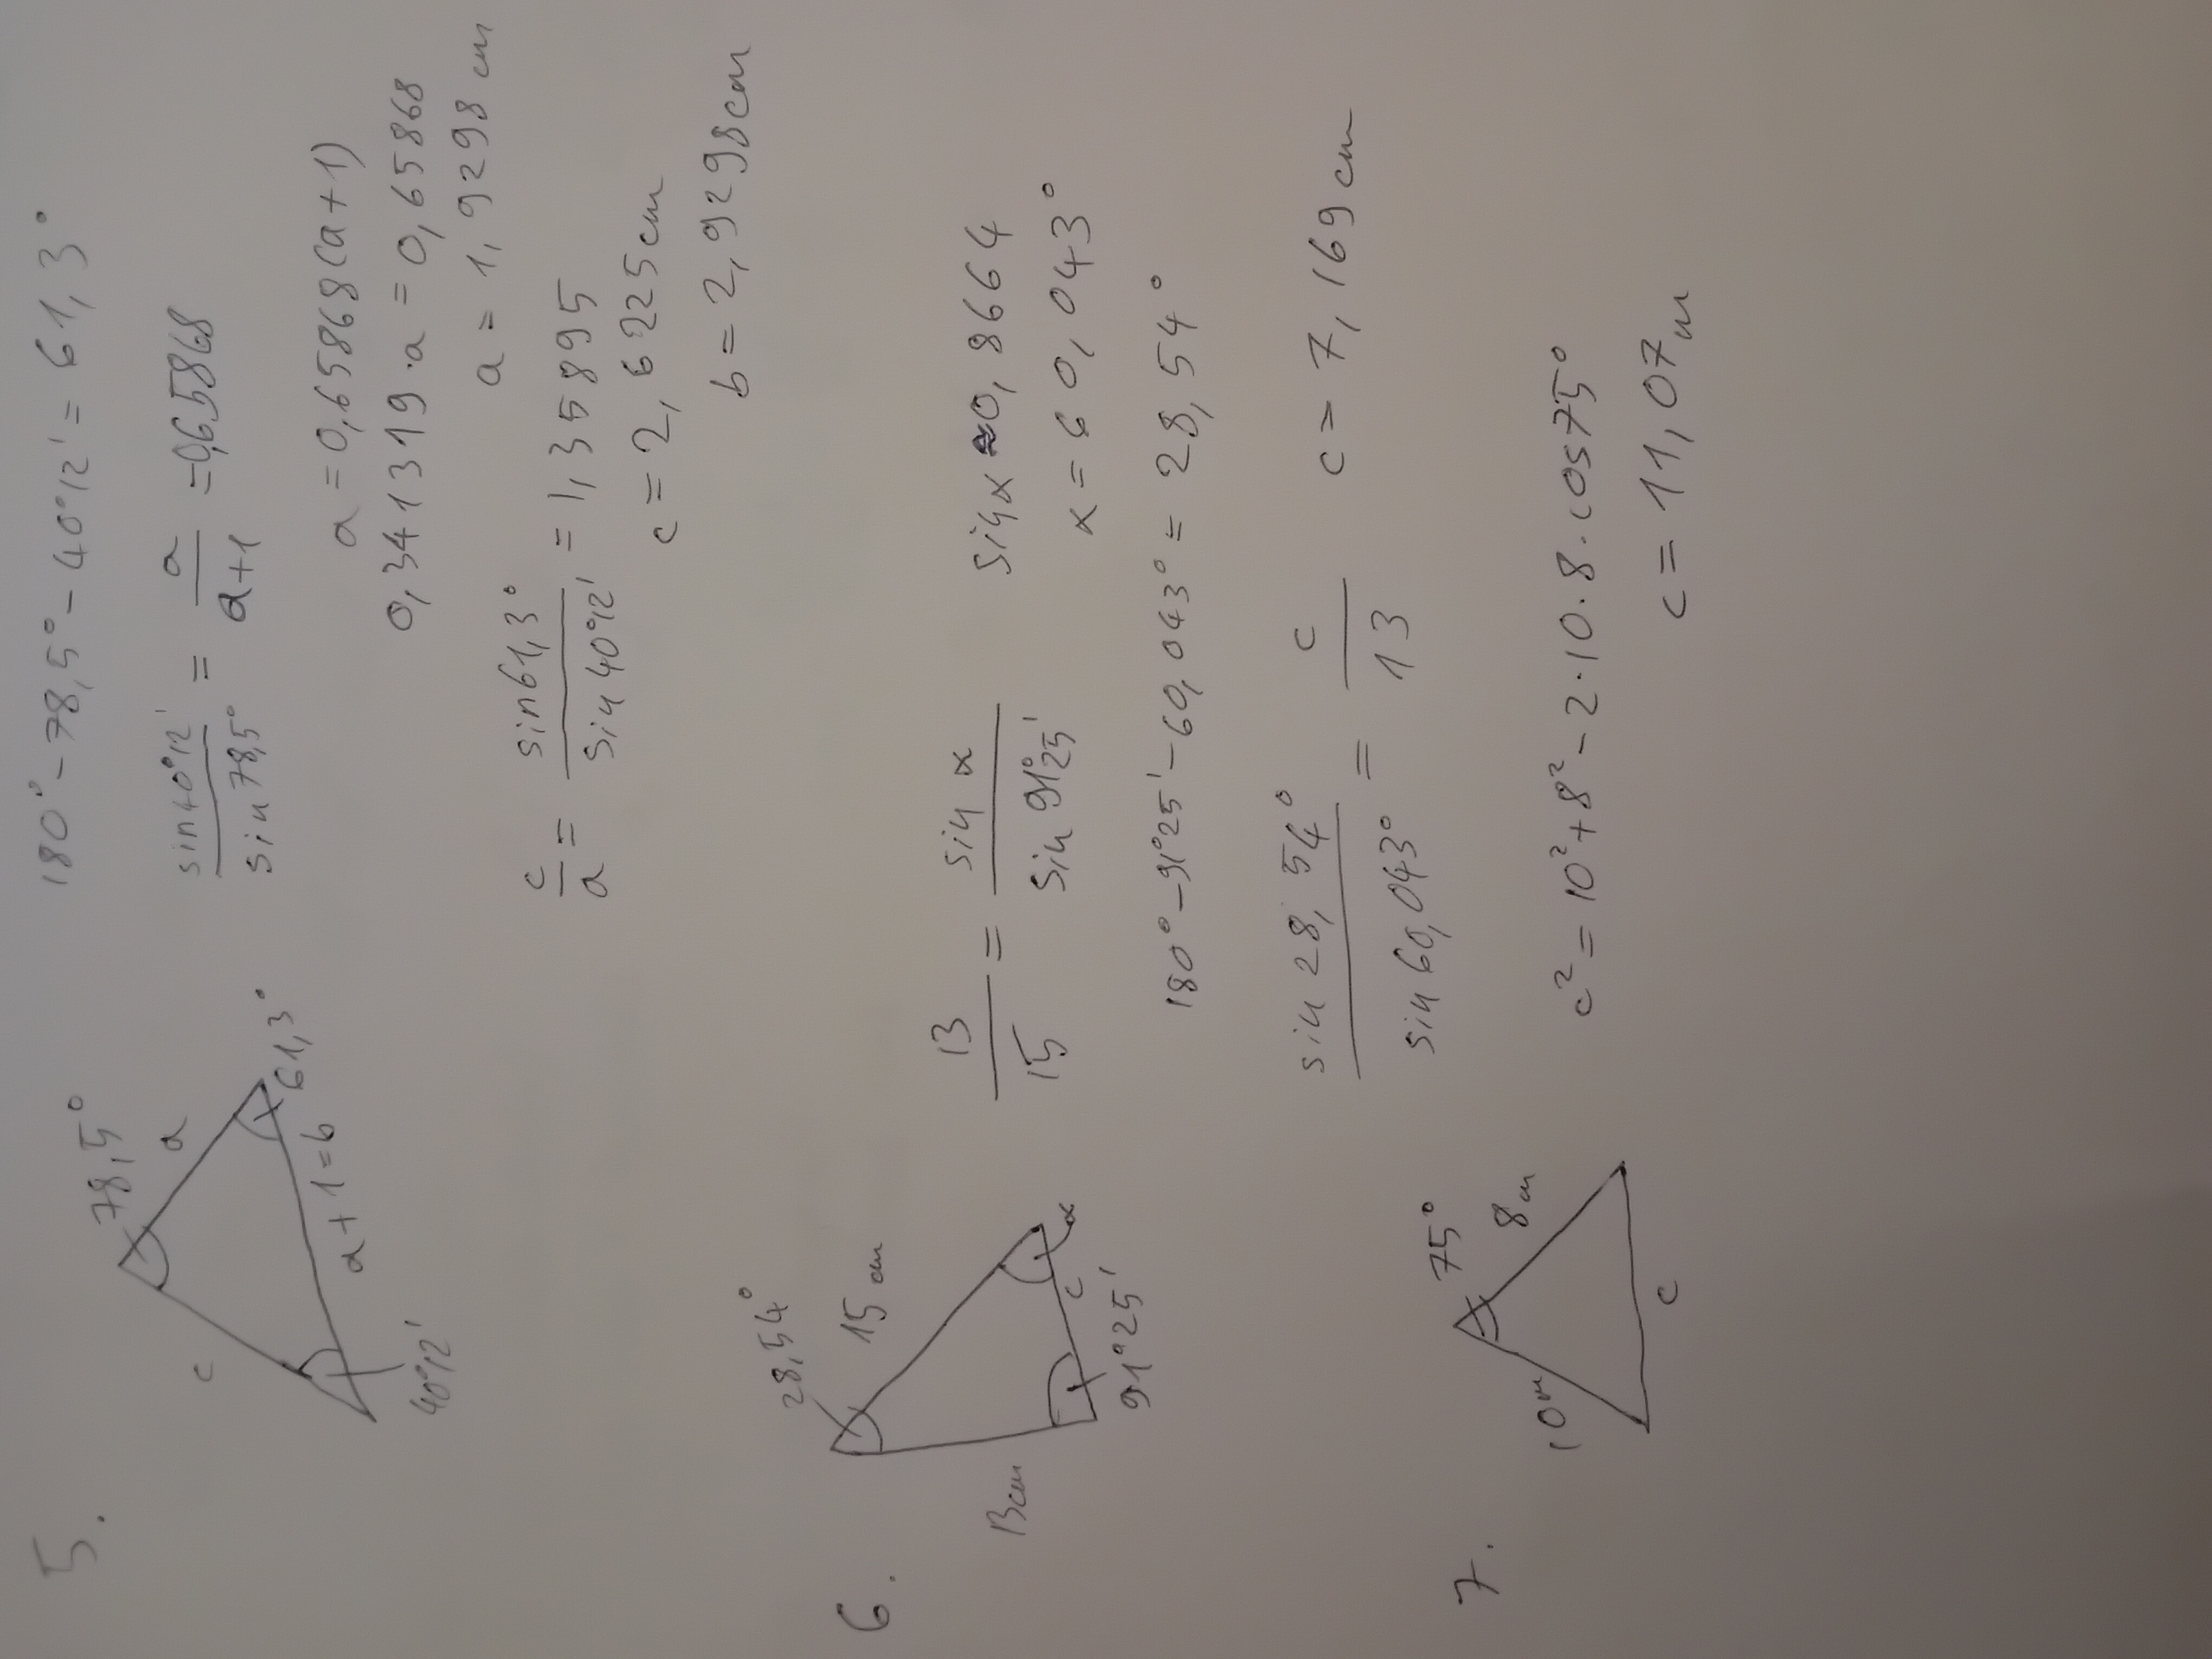 5.
180° - 78,5° - 40°12' = 61,3°
78,5°
c
a
40°12'
a+1=b
61,3°
sin40°12' / sin78,5° = a / a+1 = 0,65868
a = 0,65868(a+1)
0,341319·a = 0,65868
a = 1,9298 cm
c/a = sin61,3° / sin40°12' = 1,35895
c = 2,6225cm
b = 2,9298cm
6.
28,54°
15 cm
13cm
c
x
91°25'
13/15 = sin x / sin 91°25'
sin x = 0,8664
x = 60,043°
180° - 91°25' - 60,043° = 28,54°
sin 28,54° / sin 60,043° = c / 13
c = 7,169 cm
7.
75°
10m
8m
c
c² = 10² + 8² - 2·10·8·cos75°
c = 11,07m